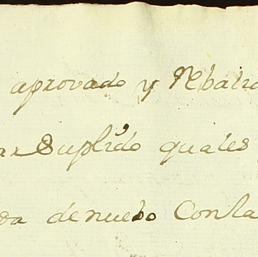 aprovado y Rebatido
ar Suplido quales
da denuebo Con la